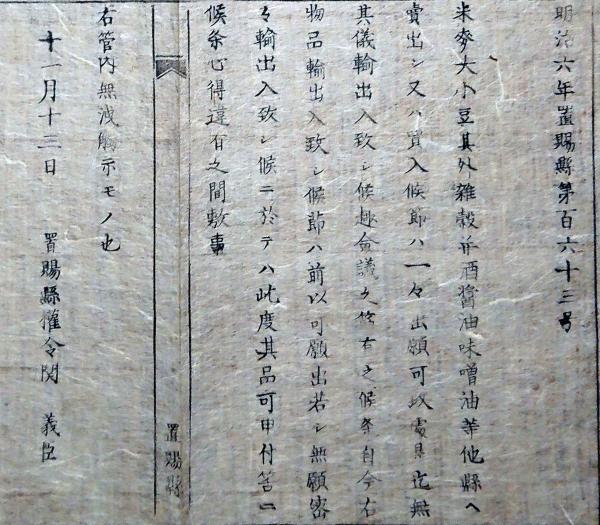 明治六年置賜縣第百六十三号
米麥大小豆其外雑穀并酒醤油味噌油等他縣ヘ
賣出シ又ハ買入候節ハ一々出願可致處是迄無
其儀輸出入致シ候趣僉議之修有之候条自今右
物品輸出入致シ候節ハ前以可願出若シ無願密
々輸出入致シ候ニ於テハ此度其品可申付筈ニ
候条心得違有之間敷事
置賜縣
右管内無洩觸示モノ也
十一月十三日
置賜縣權令関 義臣